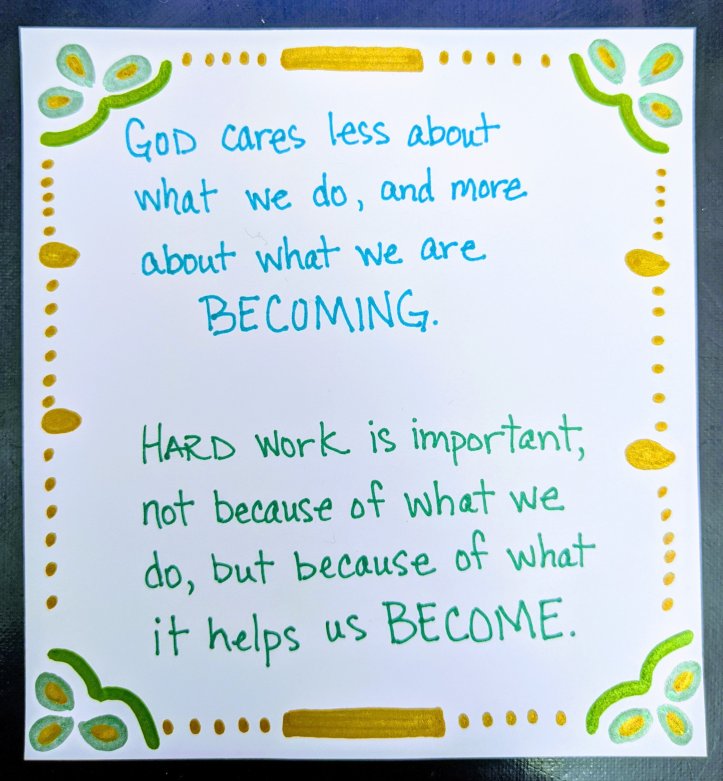 GOD cares less about
what we do, and more
about what we are
BECOMING.
HARD work is important,
not because of what we
do, but because of what
it helps us BECOME.